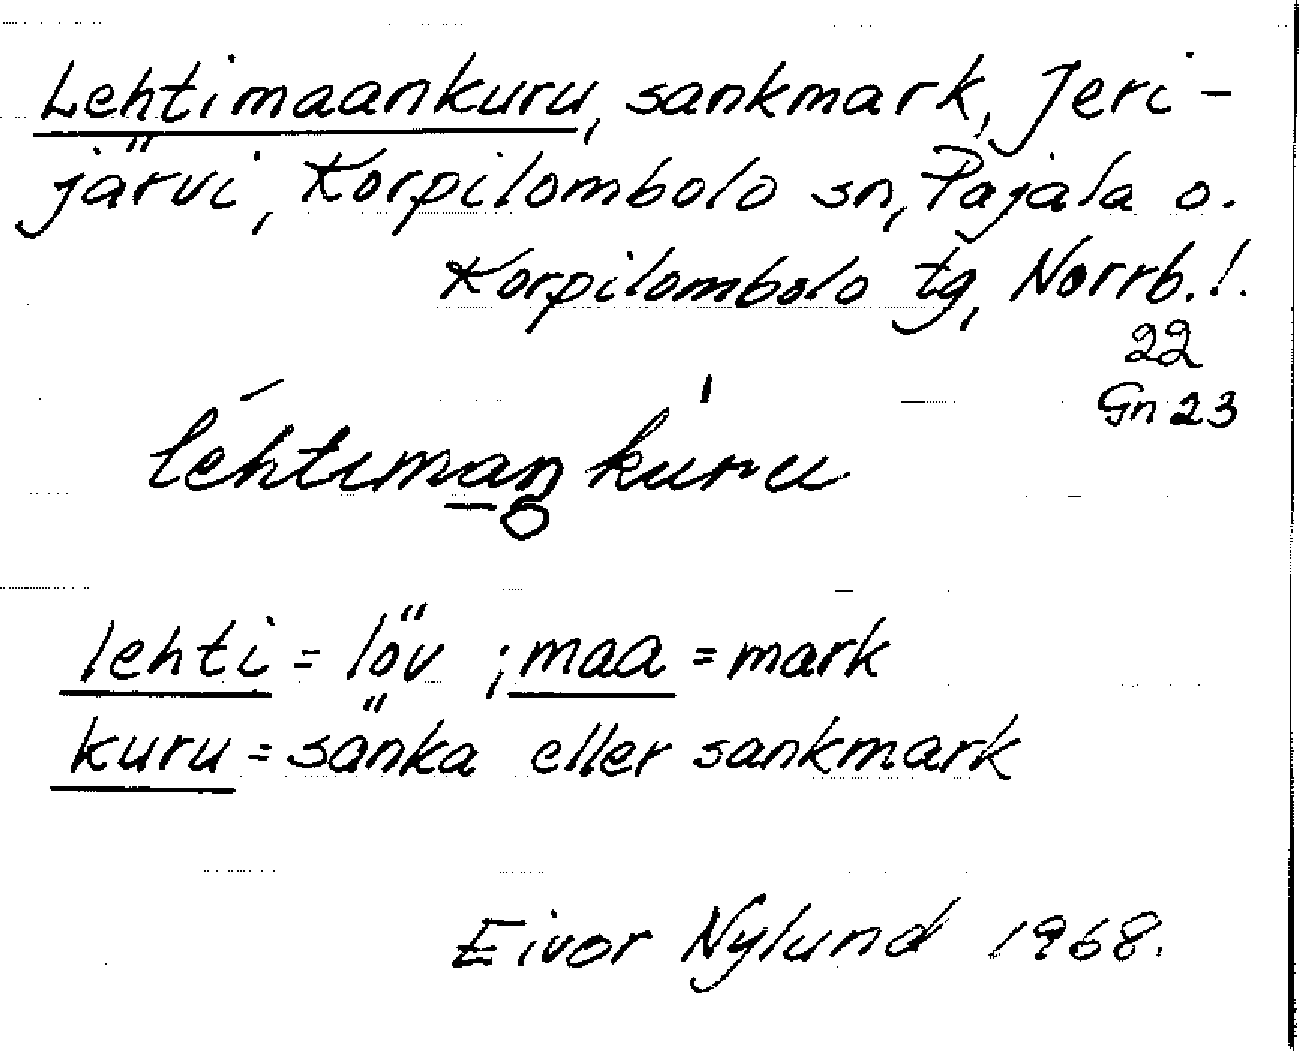 Lehtimaankuru, sankmark, Jeri-
järvi, Korpilombolo sn, Pajala o.
Korpilombolo tg, Norrb. l.
22
Gn 23
léhtimaŋ̥ kùru
lehti = löv ; maa = mark
kuru = sänka eller sankmark
Eivor Nylund 1968.